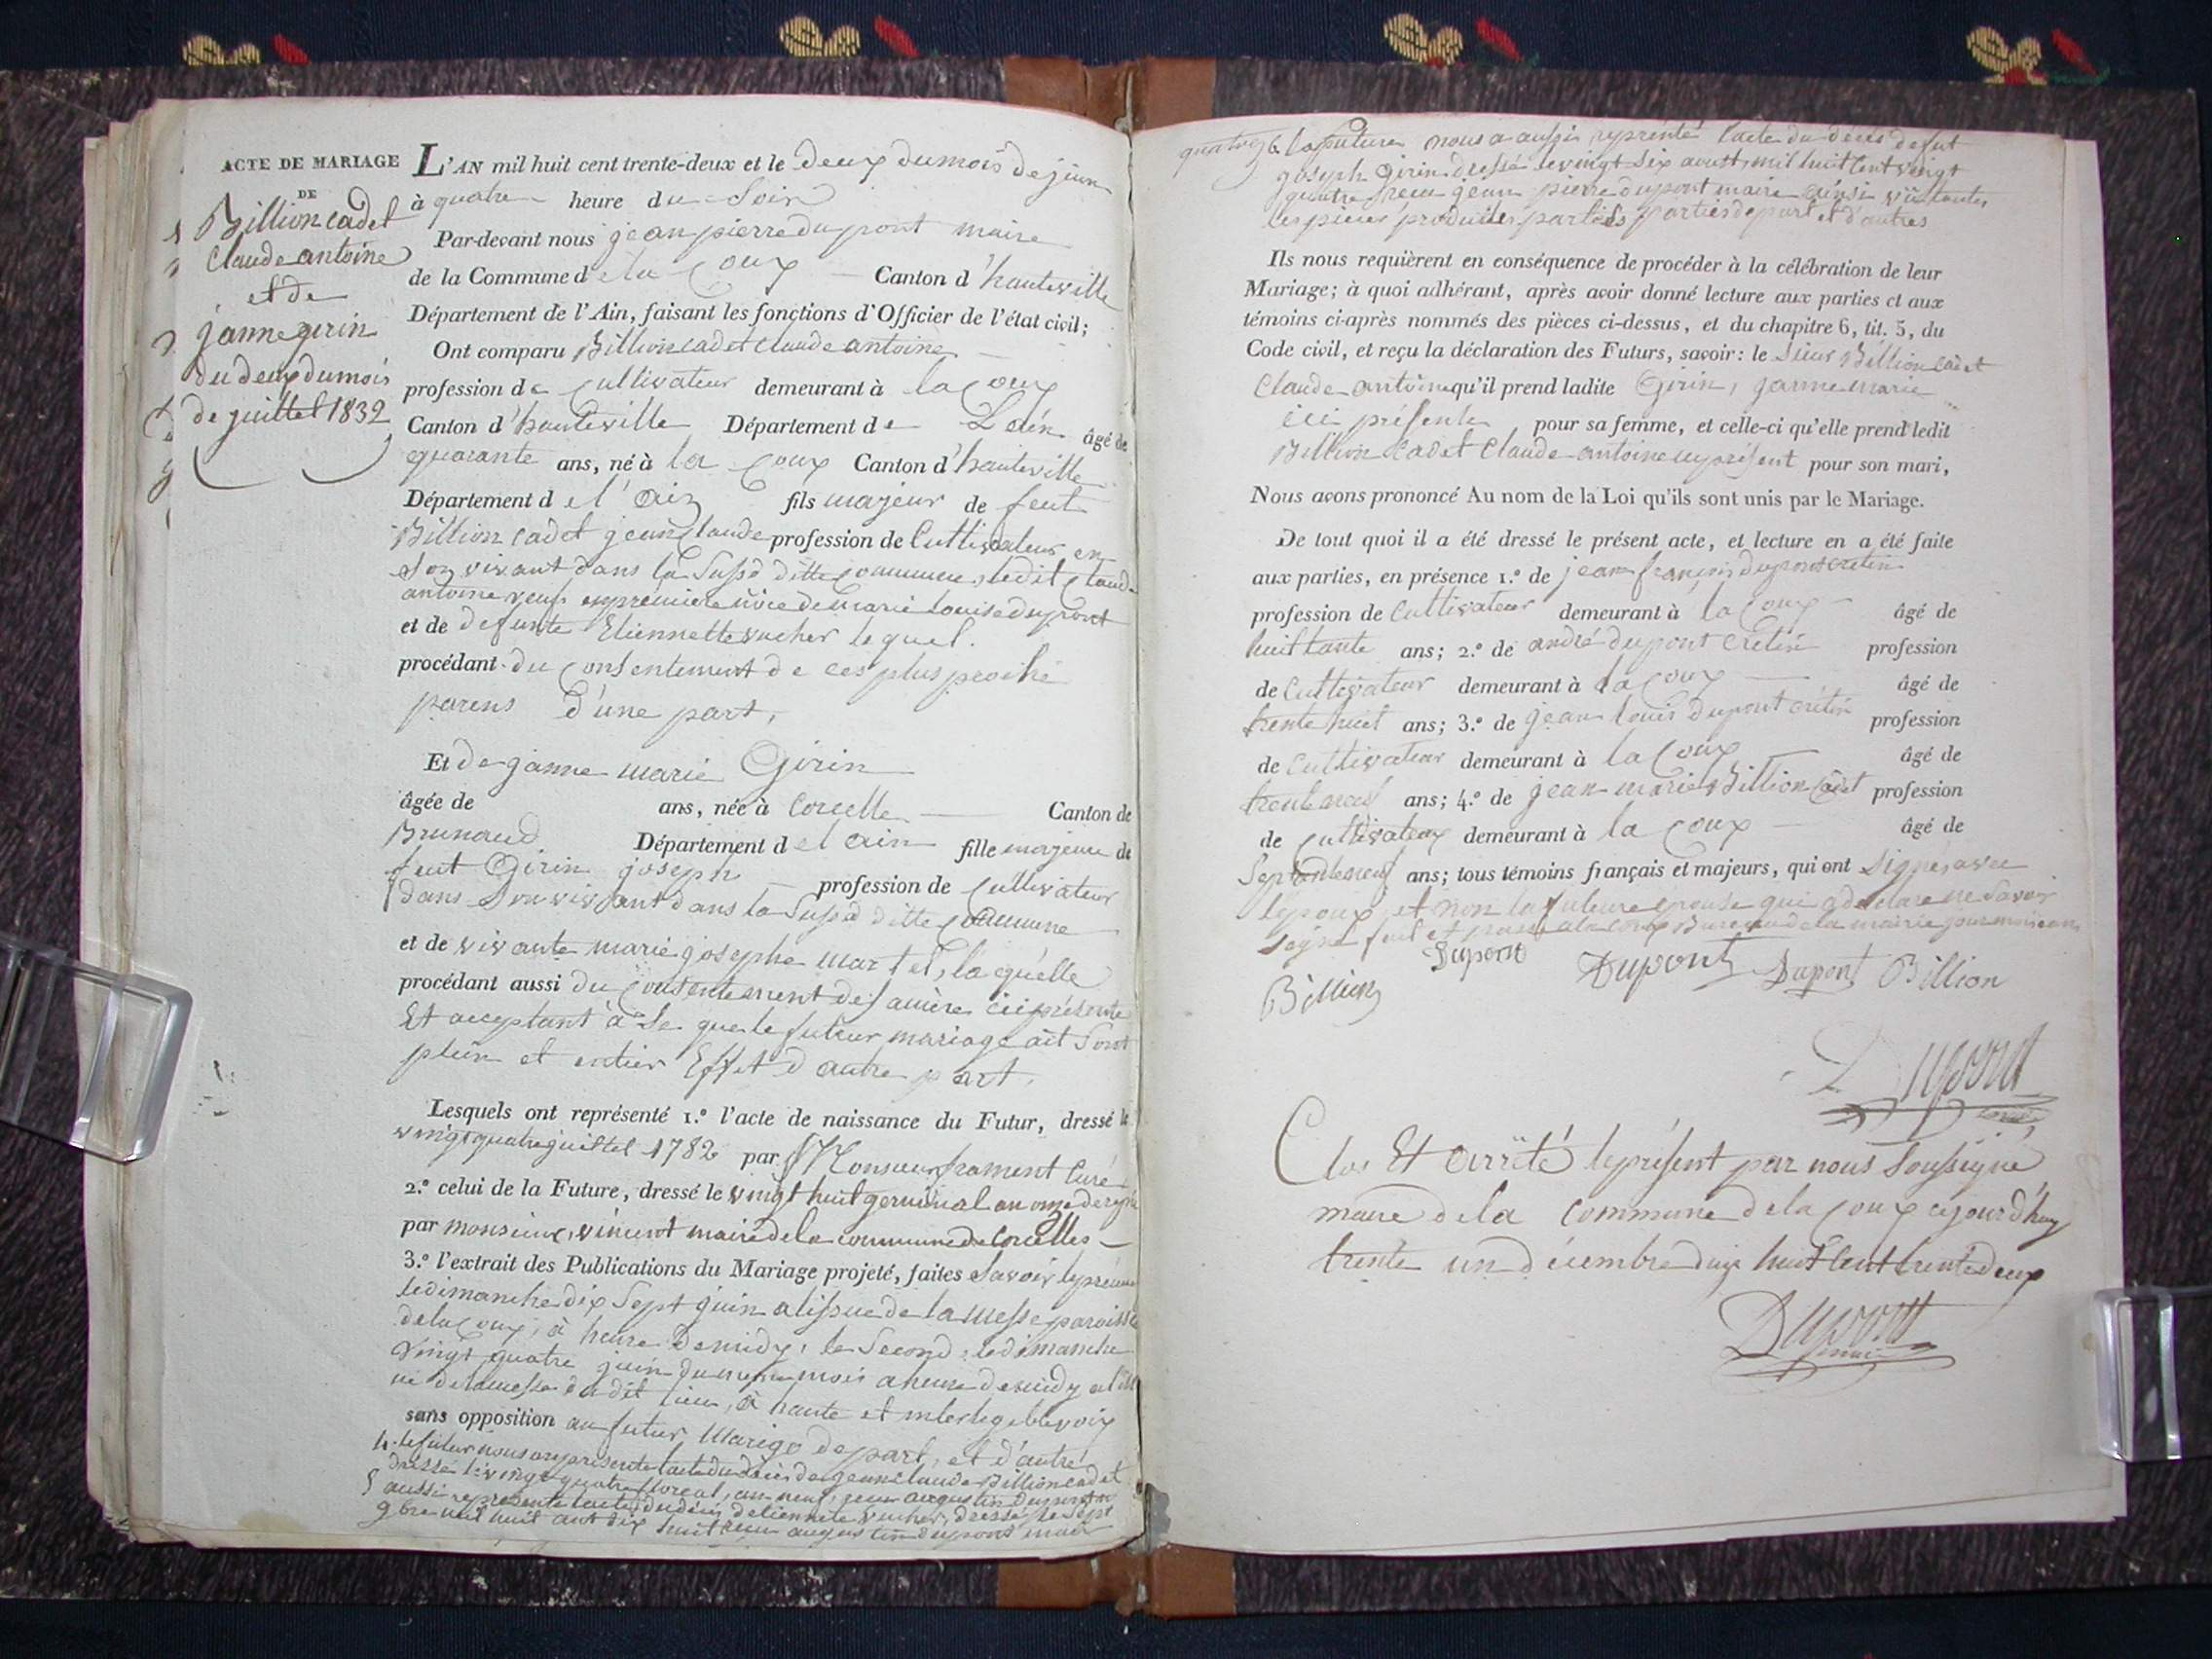 ACTE DE MARIAGE
DE
Billion cadet
Claude antoine
et de
janne girin
du deux du mois
de juillet 1832
L'AN mil huit cent trente-deux et le deux du mois de juin
à quatre heure du Soir
Par-devant nous jean pierre dupont maire
de la Commune de la Coux Canton d'hauteville
Département de l'Ain, faisant les fonctions d'Officier de l'état civil;
Ont comparu Billion cadet claude antoine
profession de Cultivateur demeurant à la Coux
Canton d'hauteville Département de Lain âgé de
quarante ans, né à la Coux Canton d'hauteville
Département de l'ain fils majeur de feut
Billion cadet jean claude profession de Cultivateur en
Son vivant dans la Susditte commune, ledit Claude
antoine veuf en première de marie louise dupont
et de defunte Etiennette vucher lequel.
procédant du Consentement de ces plus proche
parens d'une part,
Et de janne marie Girin
âgée de ans, née à Corcelle Canton de
Brunaud Département de l ain fille majeure de
feut Girin joseph profession de Cultivateur
dans Son vivant dans la Susditte Commune
et de vivante marie josephe martel, la quelle
procédant aussi du Consentement de sa mère ici présente
Et acceptant à Se que le futur mariage ait Sont
plein et entier Effet d'autre part.
Lesquels ont représenté 1.º l'acte de naissance du Futur, dressé le
vingt quatre juillet 1782 par Monsieur frament Curé
2.º celui de la Future, dressé le vingt huit germinal an onze de
par monsieur, vincent maire de la commune de Corcelles
3.º l'extrait des Publications du Mariage projeté, faites Savoir le
le dimanche dix Sept juin a lissue de la messe
de la Coux, à heure de midy, le Second, le dimanche
vingt quatre juin du meme mois a heure de midy
de la messe du dit lieu, à haute et voix
sans opposition au futur Mariage de part, et d'autre
4.º le futur nous a représenté lacte du décès de jean claude Billion cadet
dressé le vingt quatre floreal, an neuf, augustin dupont
5 aussi représenté lacte du décès detiennete vucher, dressé le Sept
9bre mil huit cent dix huit augustin dupont maire
6 la future nous a aussi représenté lacte du deces de feut
joseph Girin dressé le vingt six aoust, mil huit cent vingt
quatre jean pierre dupont maire toutes
les pieces produites parties de part et d'autres
Ils nous requièrent en conséquence de procéder à la célébration de leur
Mariage; à quoi adhérant, après avoir donné lecture aux parties et aux
témoins ci-après nommés des pièces ci-dessus, et du chapitre 6, tit. 5, du
Code civil, et reçu la déclaration des Futurs, savoir: le Sieur Billion cadet
Claude antoine qu'il prend ladite Girin, janne marie
ici présente pour sa femme, et celle-ci qu'elle prend ledit
Billion Cadet Claude antoine présent pour son mari,
Nous avons prononcé Au nom de la Loi qu'ils sont unis par le Mariage.
De tout quoi il a été dressé le présent acte, et lecture en a été faite
aux parties, en présence 1.º de jean françois dupont cretin
profession de Cultivateur demeurant à la Coux âgé de
huittante ans; 2.º de andré dupont Cretin profession
de Cultivateur demeurant à la Coux âgé de
trente huit ans; 3.º de jean louis dupont crétin profession
de Cultivateur demeurant à la Coux âgé de
trente neuf ans; 4.º de jean marie Billion Cadet profession
de Cultivateur demeurant à la Coux âgé de
Septante neuf ans; tous témoins français et majeurs, qui ont Signés avec
lepoux, et non la future epouse qui a declaré ne Savoir
Signé fait et passé a la Coux Bureau de la mairie jour mois
Dupont Dupont Dupont Billion
Billion
Dupont
Clos Et arrêté le présent par nous Soussigné
maire de la Commune de la Coux cejourd'huy
trente un décembre huit Cent trente deux
Dupont
maire